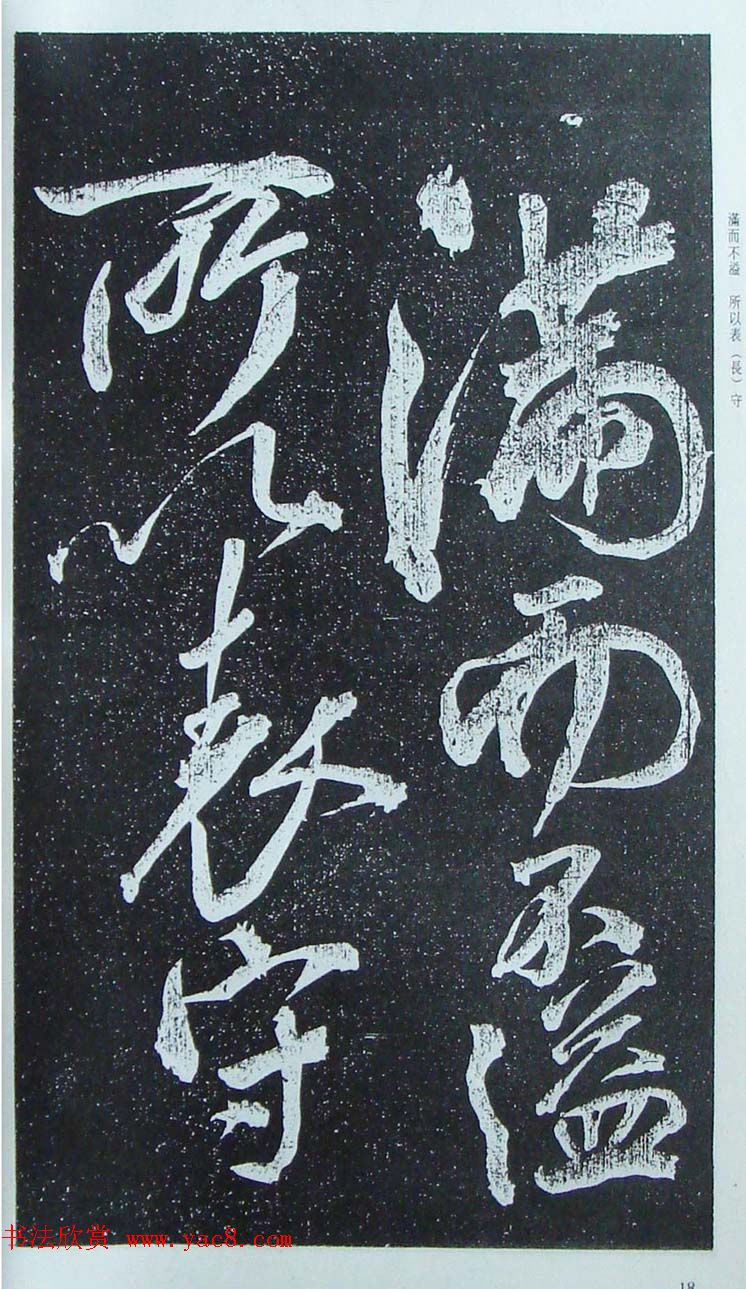 满而不溢
所以表守
滿而不溢 所以表（長）守
书法欣赏 www.yac8.com
18